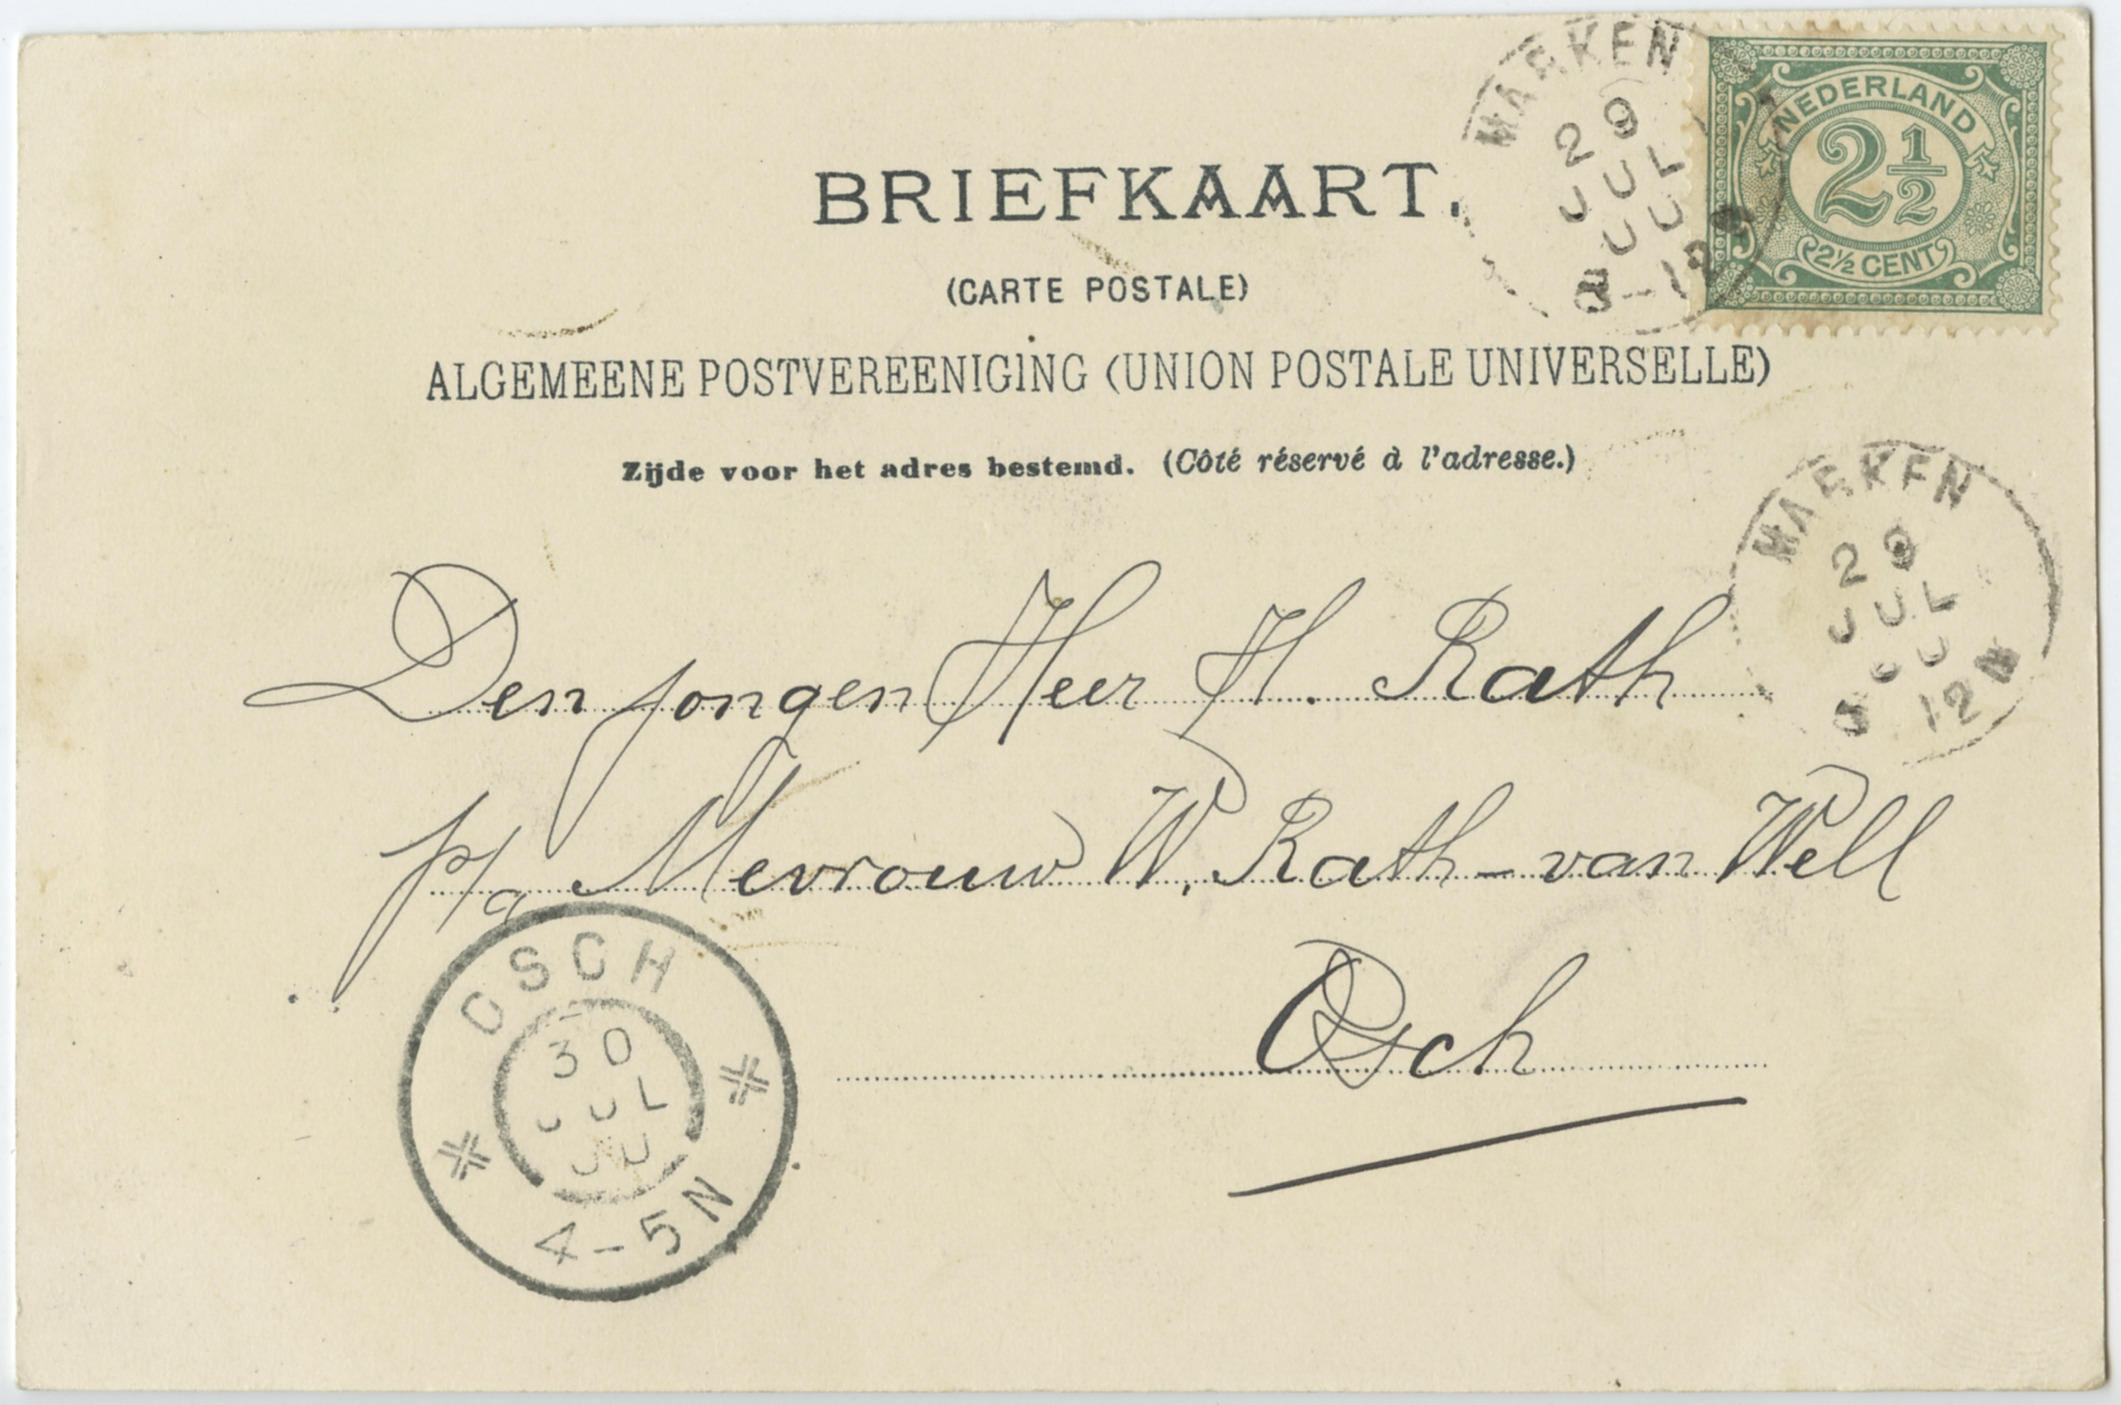 BRIEFKAART.
(CARTE POSTALE)
ALGEMEENE POSTVEREENIGING (UNION POSTALE UNIVERSELLE)
Zijde voor het adres bestemd. (Côté réservé à l'adresse.)
NEDERLAND
2 1/2
2½ CENT
MARKEN
29
JUL
MARKEN
29
JUL
12 N
Den jongen Heer H. Rath
p/a Mevrouw W. Rath-van Well
Osch
OSCH
30
JUL
4-5N